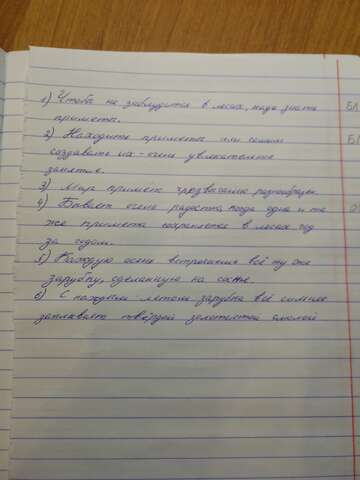 1) Чтоба не заблудится в лесах, надо знать
приметы.
2) Находить приметы или самим
создавать их - очень увлекательное
занятие.
3) Мир примет чрезвычайно разнообразен.
4) Бывает очень радостно, когда одна и та
же примета сохраняется в лесах год
за годом.
5) Каждую осень встречаешь всё ту же
зарубку, сделанную на сосне
6) С каждым летом зарубка всё сильнее
заплывает твёрдой золотистой смолой